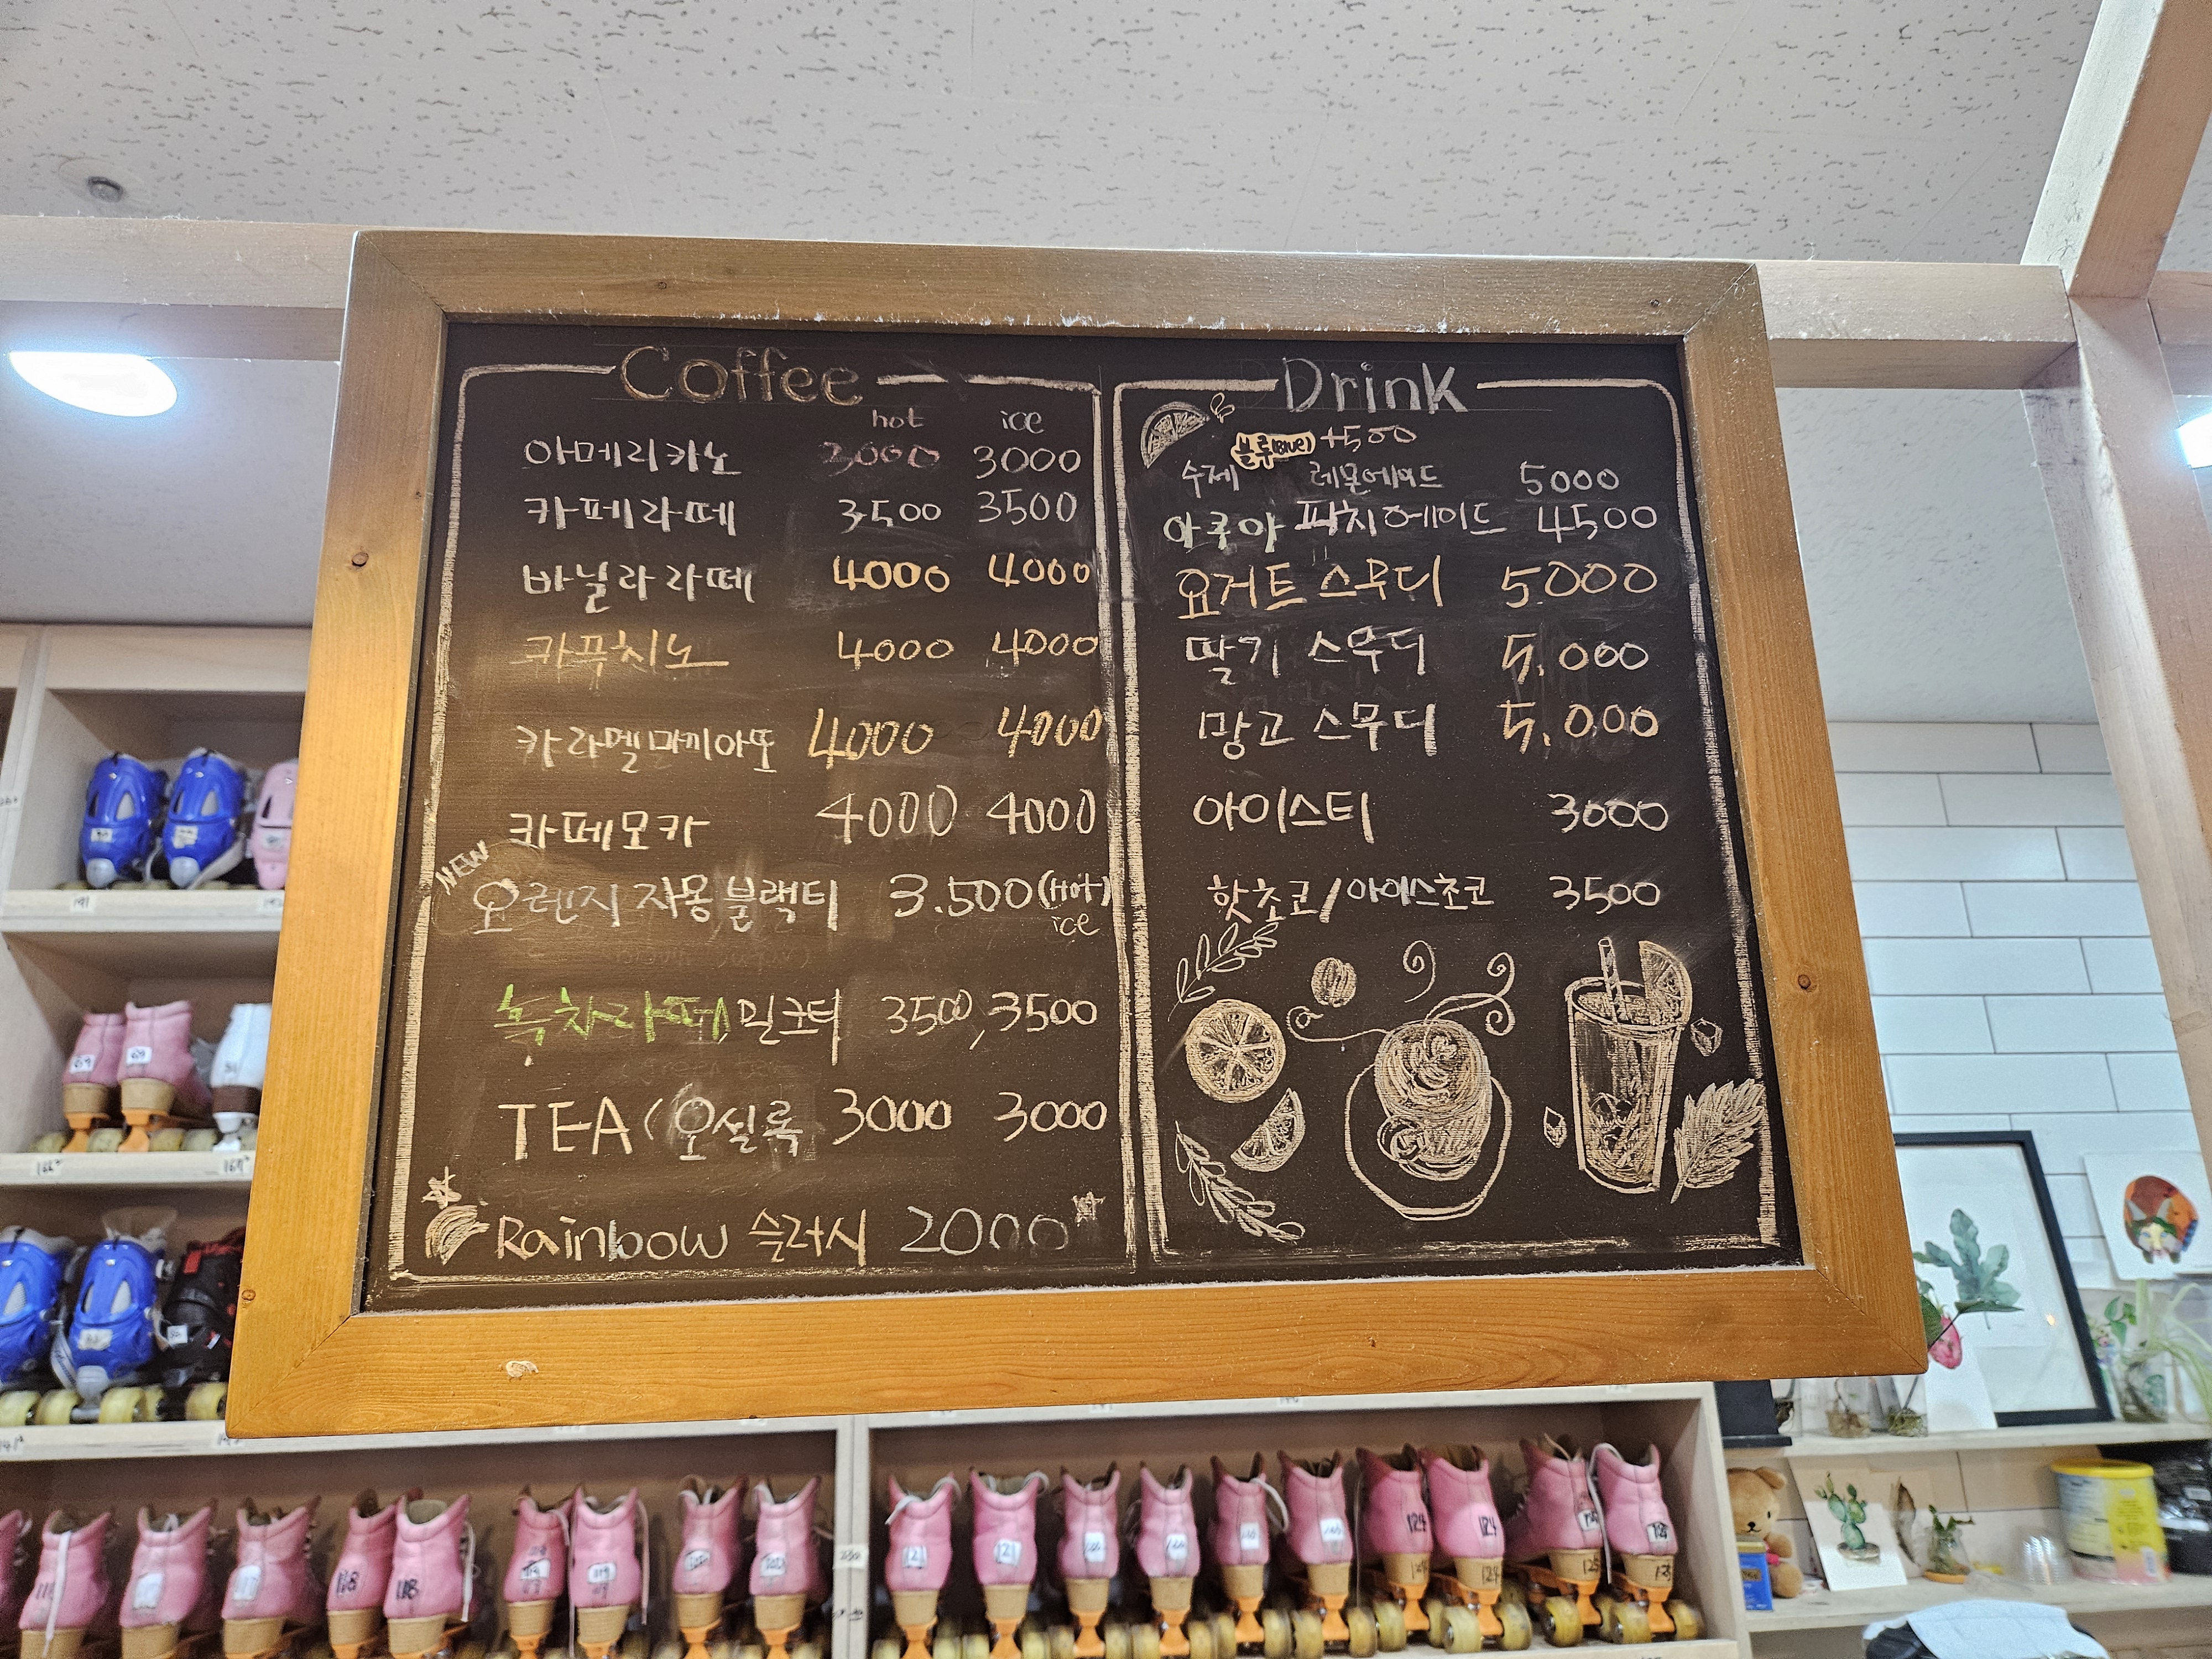 Coffee
hot ice
아메리카노 3000 3000
카페라떼 3500 3500
바닐라라떼 4000 4000
카푸치노 4000 4000
카라멜마끼아또 4000 4000
카페모카 4000 4000
NEW
오렌지 자몽 블랙티 3.500(Hot)
ice
녹차라떼, 밀크티 3500, 3500
TEA (오설록 3000 3000
Rainbow 슬러시 2000
Drink
블루(Blue) +500
수제 레몬에이드 5000
아쿠아 피치에이드 4500
요거트 스무디 5000
딸기 스무디 5.000
망고 스무디 5.000
아이스티 3000
핫초코/아이스초코 3500
118 118
119
121 121
124 124
124 124